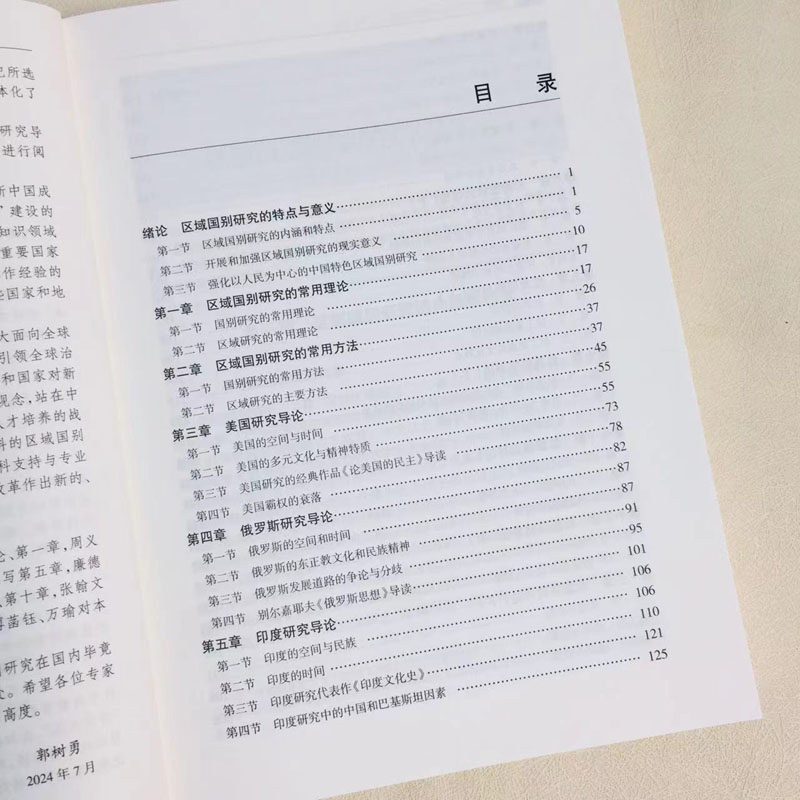 已所选
体化了
研究导
进行阅
新中国成
”建设的
知识领域
重要国家
作经验的
些国家和地
大面向全球
引领全球治
和国家对新
观念,站在中
人才培养的战
科的区域国别
科支持与专业
改革作出新的、
论、第一章,周义
写第五章,廉德
第十章,张翰文
菡钰、万瑜对本
研究在国内毕竟
处。希望各位专家
高度。
郭树勇
2024年7月
目 录
绪论 区域国别研究的特点与意义……1
第一节 区域国别研究的内涵和特点……1
第二节 开展和加强区域国别研究的现实意义……5
第三节 强化以人民为中心的中国特色区域国别研究……10
第一章 区域国别研究的常用理论……17
第一节 国别研究的常用理论……17
第二节 区域研究的常用理论……26
第二章 区域国别研究的常用方法……37
第一节 国别研究的常用方法……37
第二节 区域研究的主要方法……45
第三章 美国研究导论……55
第一节 美国的空间与时间……55
第二节 美国的多元文化与精神特质……73
第三节 美国研究的经典作品《论美国的民主》导读……78
第四节 美国霸权的衰落……82
第四章 俄罗斯研究导论……87
第一节 俄罗斯的空间和时间……87
第二节 俄罗斯的东正教文化和民族精神……91
第三节 俄罗斯发展道路的争论与分歧……95
第四节 别尔嘉耶夫《俄罗斯思想》导读……101
第五章 印度研究导论……106
第一节 印度的空间与民族……106
第二节 印度的时间……110
第三节 印度研究代表作《印度文化史》……121
第四节 印度研究中的中国和巴基斯坦因素……125